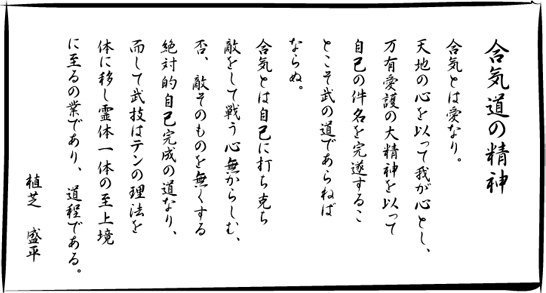 合気道の精神
合気とは愛なり。
天地の心を以って我が心とし、
万有愛護の大精神を以って
自己の件名を完遂するこ
とこそ武の道であらねば
ならぬ。
合気とは自己に打ち克ち
敵をして戦う心無からしむ、
否、敵そのものを無くする
絶対的自己完成の道なり、
而して武技はテンの理法を
体に移し霊体一体の至上境
に至るの業であり、道程である。
植芝 盛平